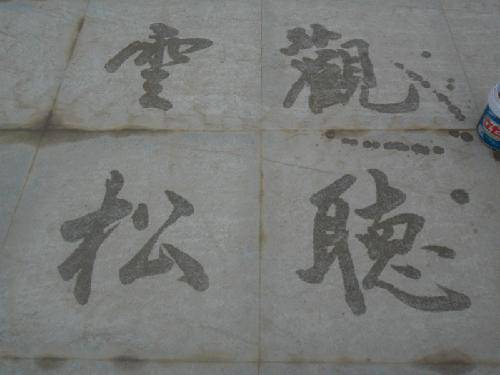 觀雲
聽松